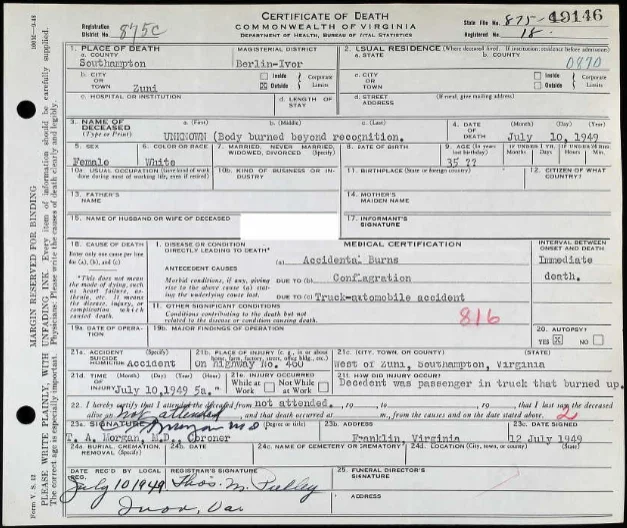 CERTIFICATE OF DEATH
COMMONWEALTH OF VIRGINIA
DEPARTMENT OF HEALTH, BUREAU OF VITAL STATISTICS
Registration District No. 875C
State File No. 875- 49146
Registrar's No. 18.
1. PLACE OF DEATH
a. COUNTY
Southampton
MAGISTERIAL DISTRICT
Berlin-Ivor
2. USUAL RESIDENCE (Where deceased lived. If institution: residence before admission)
a. STATE
b. COUNTY
0870
b. CITY OR TOWN Zuni
Inside Outside Corporate Limits
c. CITY OR TOWN
Inside Outside Corporate Limits
c. HOSPITAL OR INSTITUTION
d. LENGTH OF STAY
d. STREET ADDRESS (If rural, give mailing address)
3. NAME OF DECEASED (Type or Print)
a. (First) b. (Middle) c. (Last)
UNKNOWN (Body burned beyond recognition.
4. DATE OF DEATH (Month) (Day) (Year)
July 10, 1949
5. SEX
Female
6. COLOR OR RACE
White
7. MARRIED, NEVER MARRIED, WIDOWED, DIVORCED (Specify)
8. DATE OF BIRTH
9. AGE (In years last birthday)
35 ??
IF UNDER 1 YEAR Months Days
IF UNDER 24 HRS Hours Min.
10a. USUAL OCCUPATION (Give kind of work done during most of working life, even if retired)
10b. KIND OF BUSINESS OR INDUSTRY
11. BIRTHPLACE (State or foreign country)
12. CITIZEN OF WHAT COUNTRY?
13. FATHER'S NAME
14. MOTHER'S MAIDEN NAME
15. NAME OF HUSBAND OR WIFE OF DECEASED
17. INFORMANT'S SIGNATURE
18. CAUSE OF DEATH
Enter only one cause per line for (a), (b), and (c)
*This does not mean the mode of dying, such as heart failure, asthenia, etc. It means the disease, injury, or complication which caused death.
MEDICAL CERTIFICATION
INTERVAL BETWEEN ONSET AND DEATH
I. DISEASE OR CONDITION DIRECTLY LEADING TO DEATH*
(a) Accidental Burns
Immediate death.
ANTECEDENT CAUSES
Morbid conditions, if any, giving rise to the above cause (a) stating the underlying cause last.
DUE TO (b) Conflagration
DUE TO (c) Truck-automobile accident
II. OTHER SIGNIFICANT CONDITIONS
Conditions contributing to the death but not related to the disease or condition causing death.
816
19a. DATE OF OPERATION
19b. MAJOR FINDINGS OF OPERATION
20. AUTOPSY?
YES X NO
21a. ACCIDENT SUICIDE HOMICIDE
Accident
21b. PLACE OF INJURY (e.g., in or about home, farm, factory, street, office bldg., etc.)
On highway No. 460
21c. (CITY, TOWN, OR COUNTY) (STATE)
West of Zuni, Southampton, Virginia
21d. TIME OF INJURY (Month) (Day) (Year) (Hour)
July 10,1949 5a.m.
21e. INJURY OCCURRED
While at Work Not While at Work
21f. HOW DID INJURY OCCUR?
Decedent was passenger in truck that burned up.
22. I hereby certify that I attended the deceased from not attended, 19 , to , 19 , that I last saw the deceased
alive on not attended, and that death occurred at m., from the causes and on the date stated above. 2
23a. SIGNATURE (Degree or title)
Morgan MD
T. A. Morgan, M.D., Coroner
23b. ADDRESS
Franklin, Virginia
23c. DATE SIGNED
12 July 1949
24a. BURIAL, CREMATION, REMOVAL (Specify)
24b. DATE
24c. NAME OF CEMETERY OR CREMATORY
24d. LOCATION (City, town, or county) (State)
DATE REC'D BY LOCAL REG.
July 10 1949
REGISTRAR'S SIGNATURE
Thos. M.
Ivor, Va.
25. FUNERAL DIRECTOR'S SIGNATURE
ADDRESS
MARGIN RESERVED FOR BINDING
PLEASE WRITE PLAINLY, WITH UNFADING INK. Every item of information should be carefully supplied.
The correct age is especially important. Physicians: Please write the causes of death clearly and legibly.
Form V. S. 12